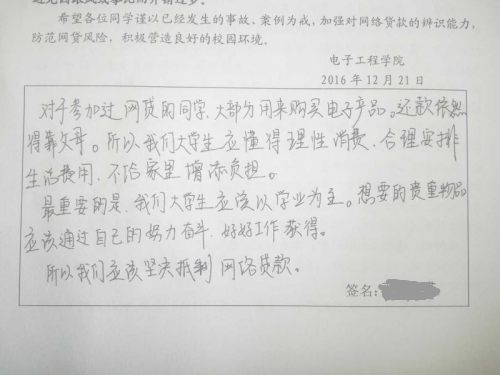 希望各位同学谨以已经发生的事故、案例为戒，加强对网络贷款的辨识能力，
防范网贷风险，积极营造良好的校园环境。
电子工程学院
2016 年 12 月 21 日
对于参加过网贷的同学，大部分用来购买电子产品。还款依然
得靠父母。所以我们大学生应懂得理性消费，合理安排
生活费用，不给家里增添负担。
最重要的是，我们大学生应该以学业为主。想要的贵重物品
应该通过自己的努力奋斗，好好工作获得。
所以我们应该坚决抵制网络贷款。
签名: